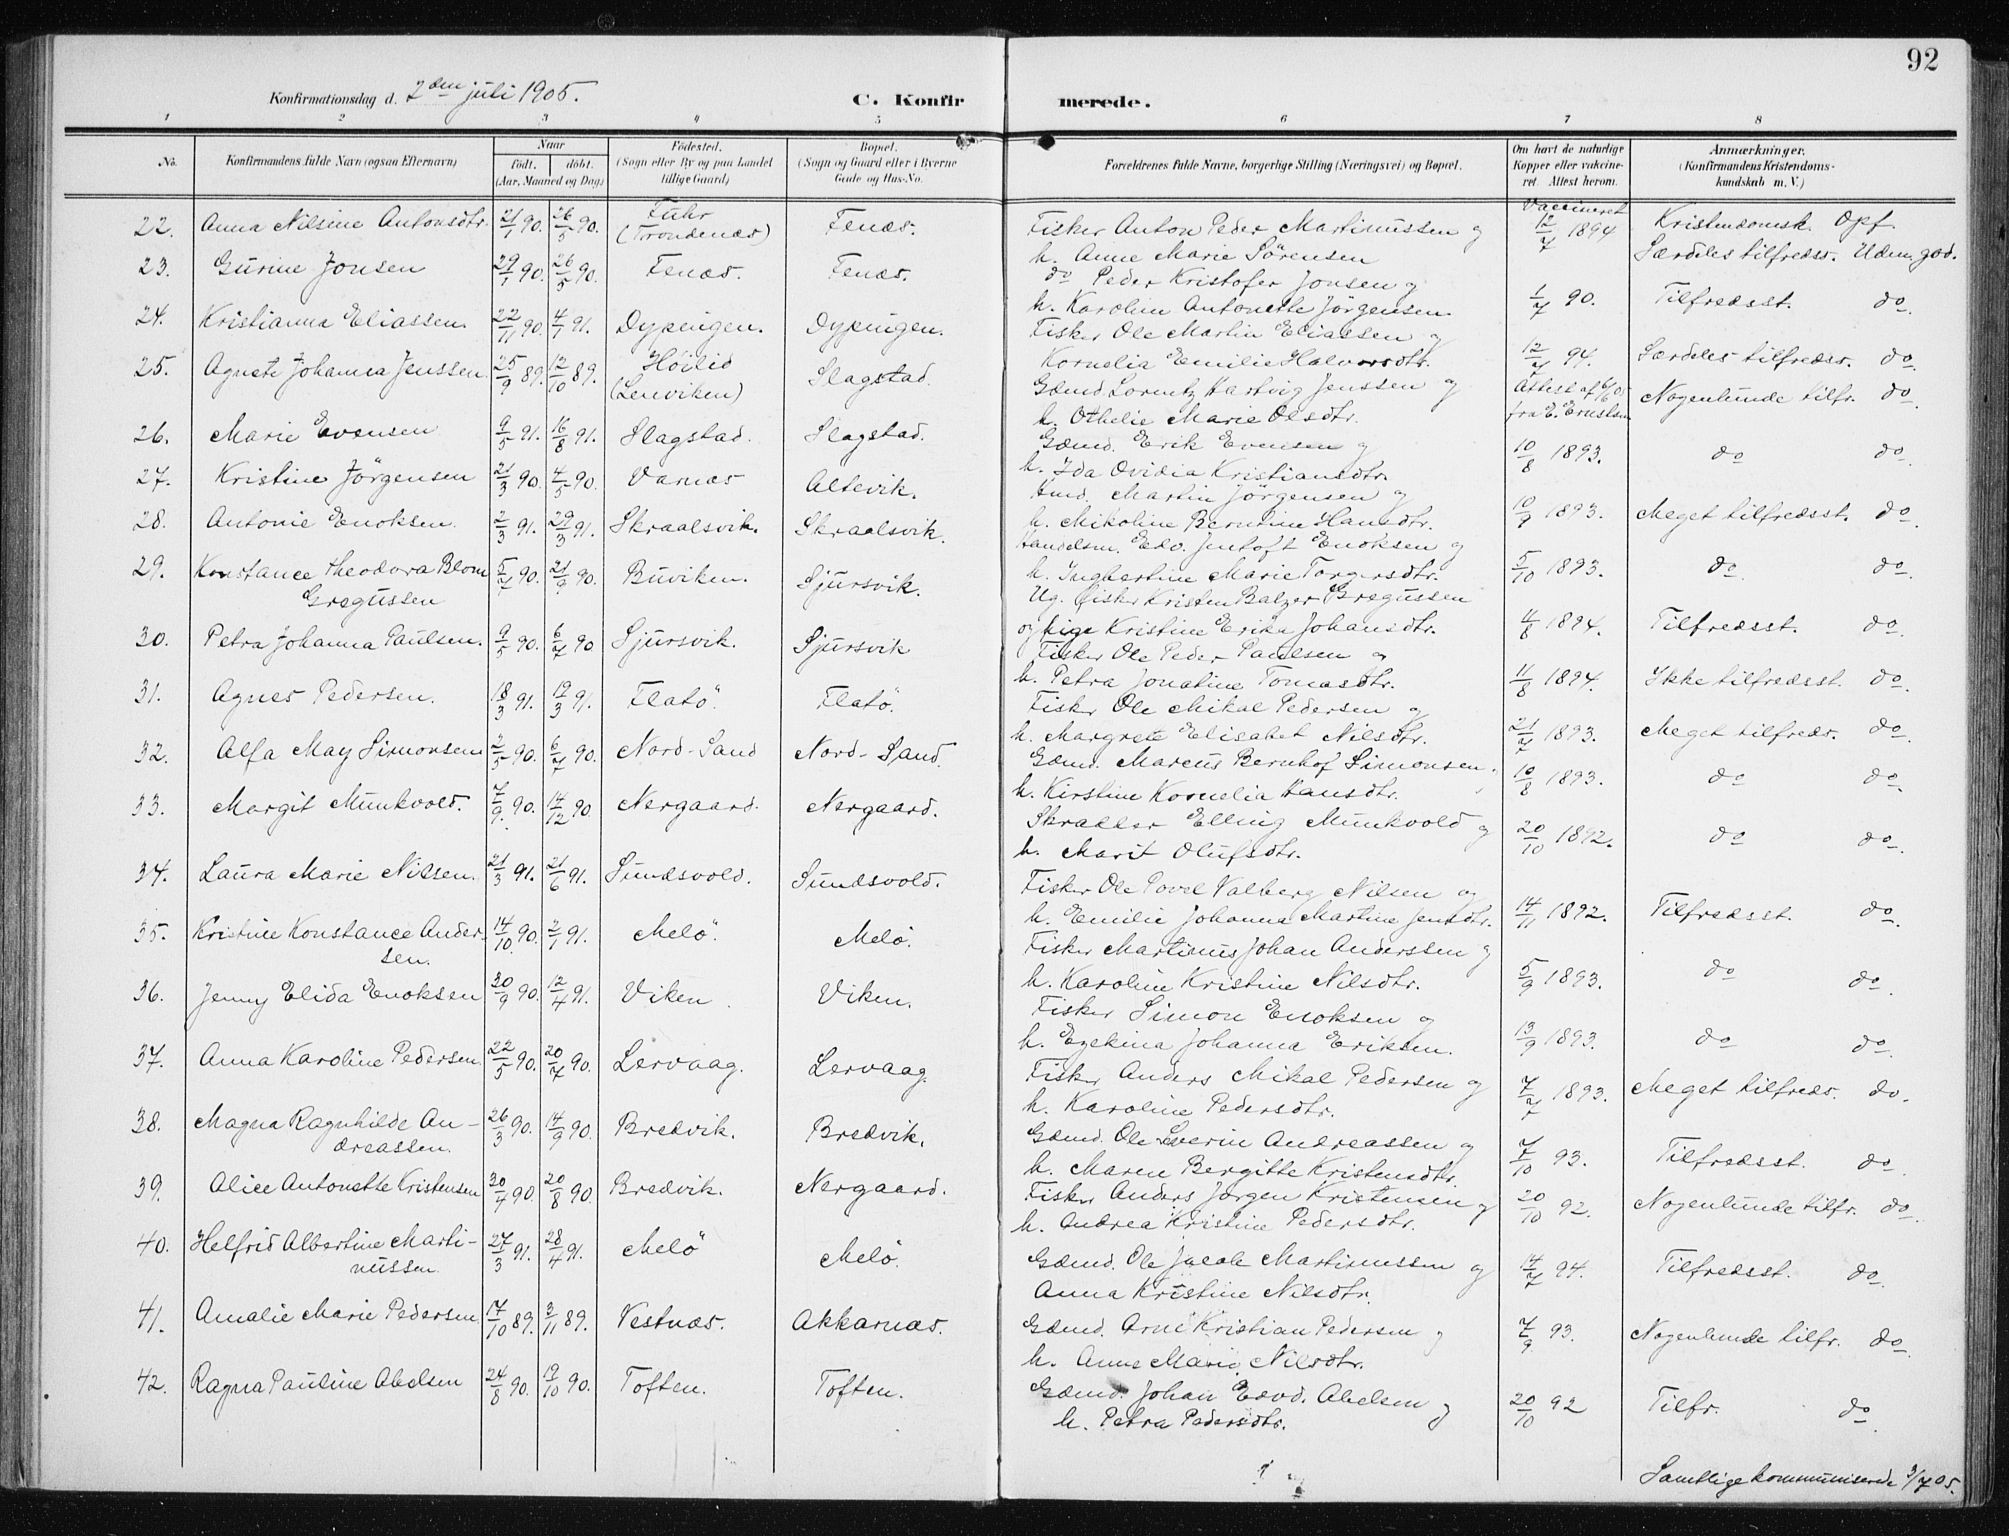 92
Konfirmationsdag d. 2den juli 1905.
C. Konfirmerede.
1 2 3 4 5 6 7 8
No. Konfirmandens fulde Navn (ogsaa Efternavn) Naar født. døbt. (Aar, Maaned og Dag) Fødested. (Sogn eller By og paa Landet tillige Gaard) Bopæl. (Sogn og Gaard eller i Byerne Gade og Hus-No. Forældrenes fulde Navne, borgerlige Stilling (Næringsvei) og Bopæl. Om havt de naturlige Kopper eller vakcineret. Attest herom. Anmærkninger. (Konfirmandens Kristendomskundskab m. V.)
22. Anna Nilsine Antonsdtr. 21/1 90. 26/5 90. Fuhr (Trondenæs) Fenæs. Fisker Anton Peder Martinussen og h. Anne Marie Sörensen Vaccineret 12/7 1894 Kristendomsk. Opf. Særdeles tilfredss. Udm. god.
23. Gurine Jonsen 29/1 90. 26/5 90. Fenæs. Fenæs. do Peder Kristofer Jonsen og h. Karoline Antonette Jörgensen. 1/7 90. Tilfredsst. do.
24. Kristianna Eliassen. 22/11 90. 4/1 91. Dypingen. Dypingen. Fisker Ole Martin Eliassen og Kornelia Emilie Halvorsdtr. 12/7 94. Særdeles tilfredss. do.
25. Agnete Johanna Jenssen 25/9 89. 12/10 89. Höilid (Lenviken) Slagstad. Gdmd. Lorentz Hartvig Jenssen og h. Othelie Marie Olsdtr. Attest af 6/6 05 fra E. Ernstsen Nogenlunde tilfr. do.
26. Marie Evensen 9/5 91. 16/8 91. Slagstad. Slagstad. Gdmd. Erik Evensen og h. Ida Ovidia Kristiansdtr. 10/8 1893. do do.
27. Kristine Jörgensen 21/3 90. 4/5 90. Varnæs Altevik. Hmd. Martin Jörgensen og h. Nikoline Berntine Hansdtr. 10/9 1893. Meget tilfredsst. do.
28. Antonie Enoksen. 2/3 91. 29/3 91. Skraalsvik. Skraalsvik. Handelsm. Edv. Jentoft Enoksen og h. Ingbertine Marie Torgersdtr. 5/10 1893. do do.
29. Konstance Theodora Blom Gregussen 5/7 90. 21/9 90. Buviken. Sjursvik. Ug. Fisker Kristen Balzer Gregussen og Pige Kristine Erika Johansdtr. 4/8 1894. Tilfredsst. do.
30. Petra Johanna Paulsen. 9/5 90. 6/7 90 Sjursvik. Sjursvik Fisker Ole Peder Paulsen og h. Petra Jonatine Tomasdtr. 11/8 1894. Ikke tilfredsst. do.
31. Agnes Pedersen. 18/3 91. 19/3 91. Flatö. Flatö. Fisker Ole Mikal Pedersen og h. Margrete Elisabet Nilsdtr. 21/7 1893. Meget tilfreds. do.
32. Alfa May Simonsen 2/5 90. 6/7 90. Nord-Sand Nord-Sand. Gdmd. Marcus Bernhof Simonsen. h. Kirstine Kornelia Hansdtr. 10/8 1893. do do.
33. Margit Munkvold. 7/9. 90. 14/12 90. Nergaard. Nergaard. Skrædder Elling Munkvold og h. Marit Olufsdtr. 20/10 1892. do do.
34. Laura Marie Nilsen. 21/3 91. 21/6 91. Sundsvold. Sundsvold. Fisker Ole Povel Valberg Nilsen og h. Emilie Johanna Martine Jensdtr. 14/11 1892. Tilfredsst. do.
35. Kristine Konstance Andersen. 14/10 90. 2/1 91. Melö. Melö. Fisker Martinus Johan Anderssen og h. Karoline Kristine Nilsdtr. 5/9 1893. do do.
36. Jenny Elida Enoksen 30/9 90. 12/4 91. Viken. Viken. Fisker Simon Enoksen og h. Ezekina Johanna Eriksen. 13/9 1893. do do.
37. Anna Karoline Pedersen. 22/5 90. 20/7 90. Lervaag. Lervaag. Fisker Anders Mikal Pedersen og h. Karoline Pedersdtr. 7/7 1893. Meget tilfreds. do.
38. Magna Ragnhilde Andreassen. 26/3 90. 14/9 90. Bredvik. Bredvik. Gdmd. Ole Severin Andreassen og h. Maren Bergitte Kristensdtr. 7/10 93. Tilfredsst. do.
39. Alice Antonette Kristensen 30/4 90. 20/8 90. Bredvik. Nergaard. Fisker Anders Jørgen Kristensen og h. Andrea Kristine Pedersdtr. 20/10 92. Nogenlunde tilfr. do.
40. Helfrid Albertine Martinussen. 27/3 91. 28/4 91. Melö Melö. Gdmd. Ole Jacob Martinussen og Anna Kristine Nilsdtr. 14/7 94. Tilfredsst. do.
41. Amalie Marie Pedersen. 17/10 89. 3/11 89. Vestnæs. Akkarnæs. Gdmd. Arni Kristian Pedersen og h. Anne Marie Nilsdtr. 7/9 93. Nogenlunde tilfr. do.
42. Ragna Pauline Abelsen 24/8 90. 19/10 90. Toften. Toften. Gdmd. Johan Edvd. Abelsen og h. Petra Pedersdtr. 20/10 92 Tilfr. do
Samtlige kommuniserede 3/7 05.